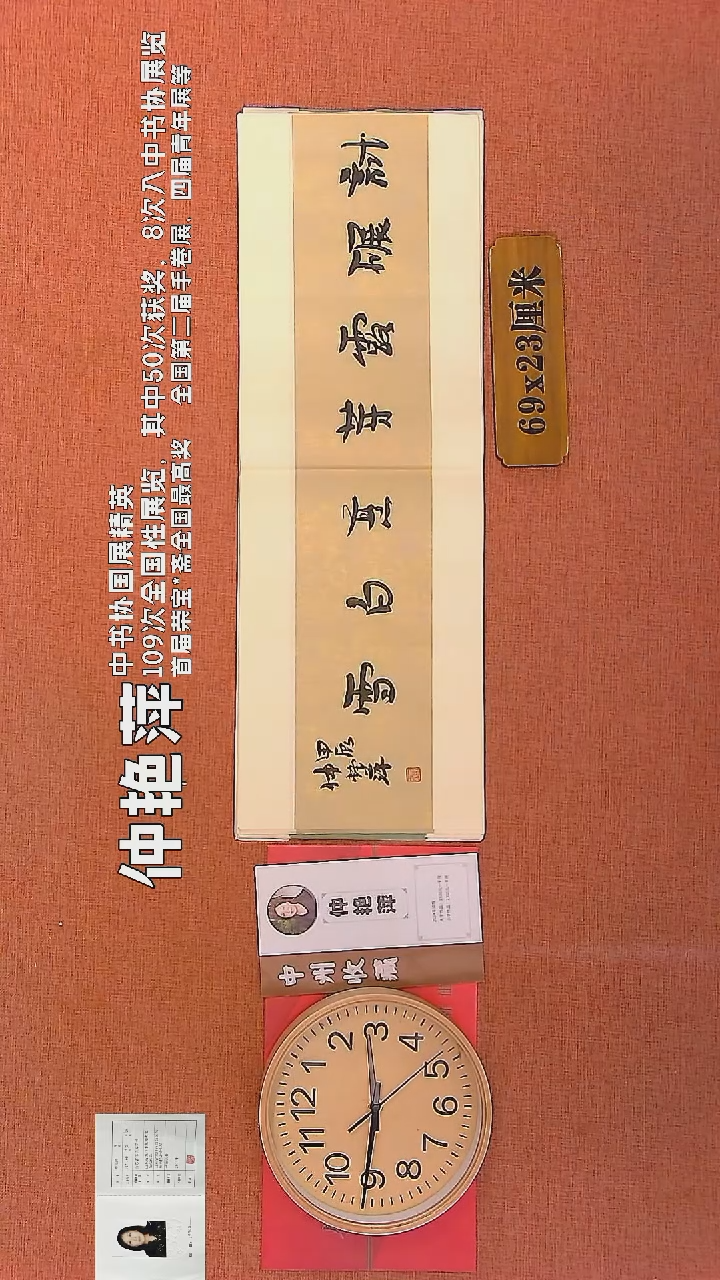 仲艳萍
中书协国展精英
109次全国性展览，其中50次获奖，8次入中书协展览
首届荣宝*斋全国最高奖 全国第二届手卷展，四届青年展等
試碾露芽烹白雪
甲辰
仲艷萍
69x23厘米
仲艳萍
中州收藏
12
1
2
3
4
5
6
7
8
9
10
11